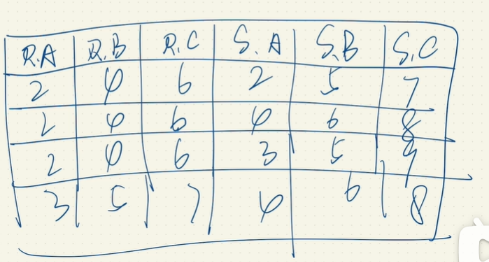 R.A R.B R.C S.A S.B S.C
2 4 6 2 5 7
2 4 6 4 6 8
2 4 6 3 5 9
3 5 7 4 6 8